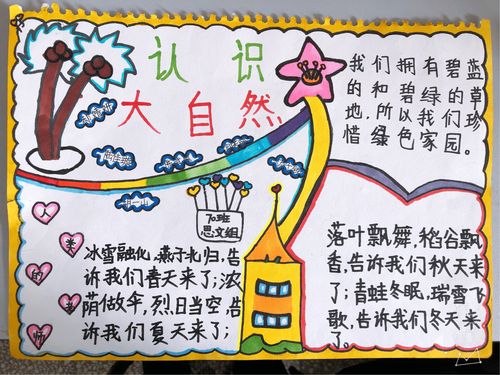 认识
大自然
我们拥有碧蓝
的和碧绿的草
地,所以我们珍
惜绿色家园。
70班
人类的老师
冰雪融化,燕子北归,告
诉我们春天来了;浓
荫做伞,烈日当空,告
诉我们夏天来了;
落叶飘舞,稻谷飘
香,告诉我们秋天来
了;青蛙冬眠,瑞雪飞
歌,告诉我们冬天来
了。